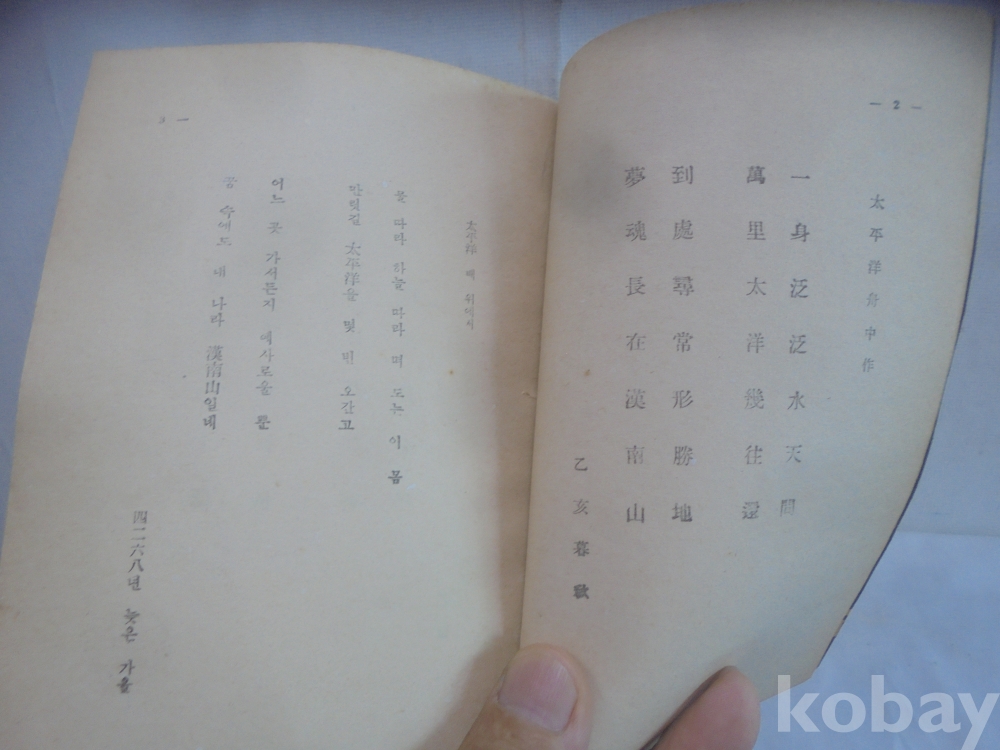 — 2 —
太平洋舟中作
一身泛泛水天間
萬里太洋幾往還
到處尋常形勝地
夢魂長在漢南山
乙亥暮秋
3 —
太平洋 배 위에서
물 따라 하늘 따라 떠 도는 이 몸
만릿길 太平洋을 몇 번 오간고
어느 곳 가서든지 예사로울 뿐
꿈 속에도 내 나라 漢南山일네
四二六八년 늦은 가을
kobay